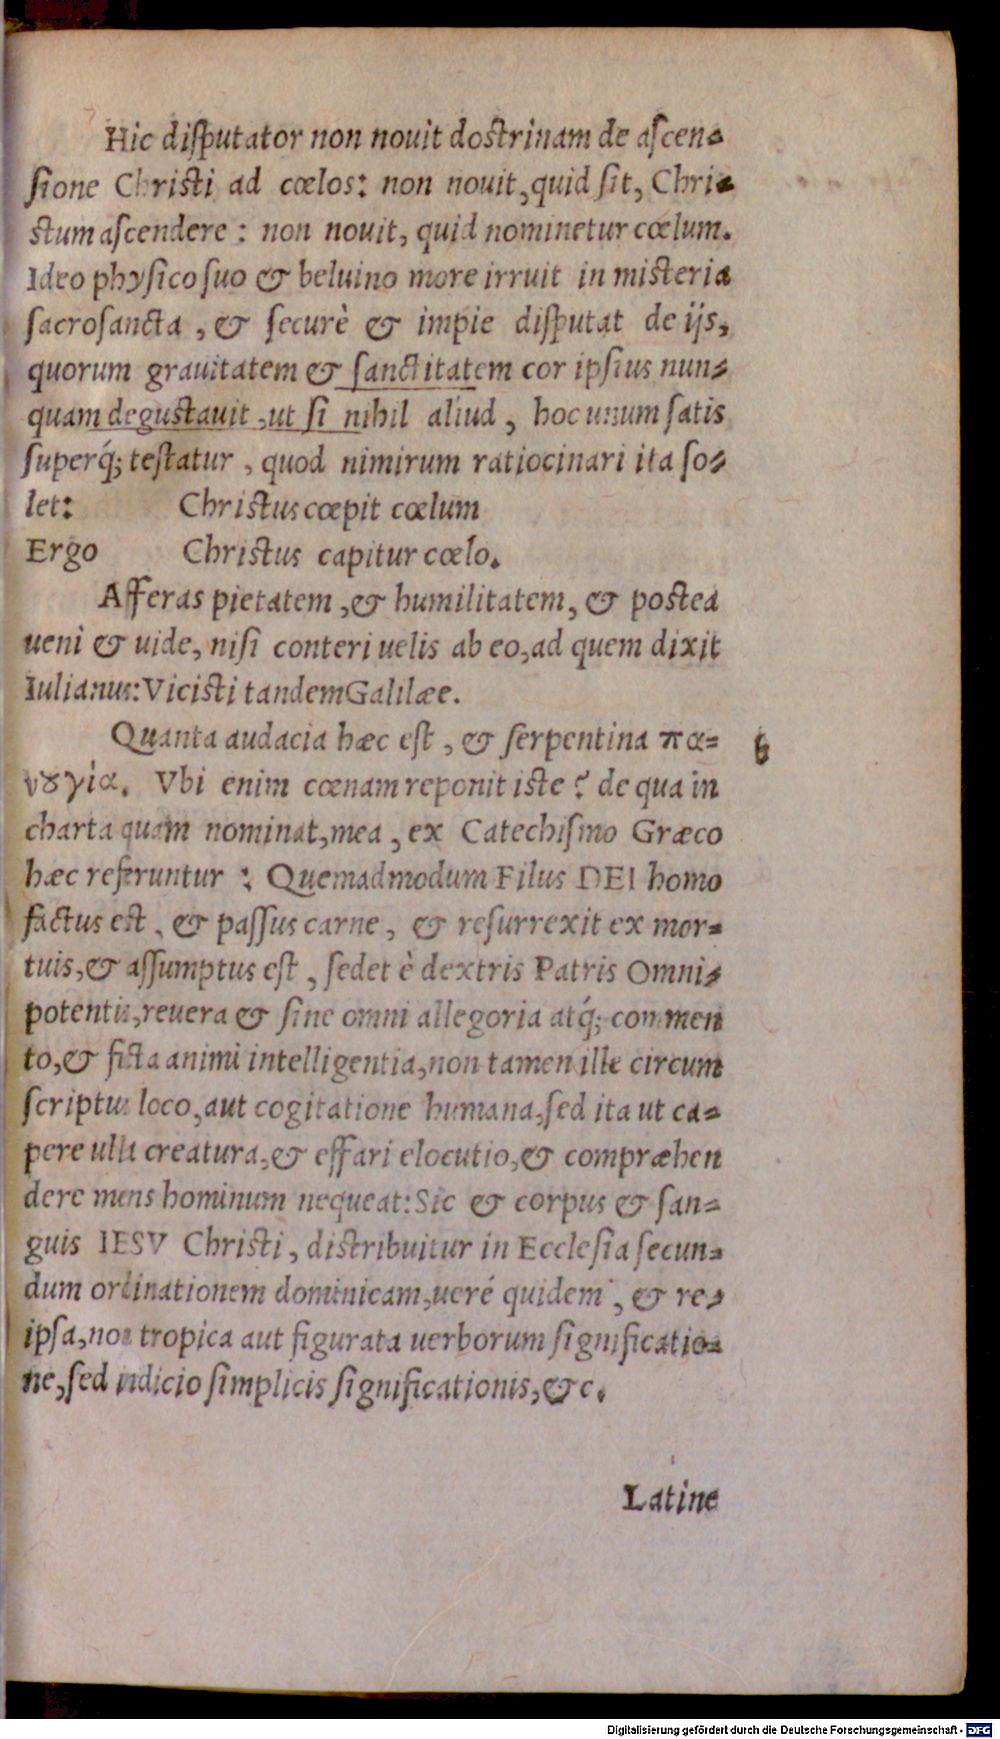 Hic diſputator non nouit doctrinam de aſcen-
ſione Chriſti ad cœlos: non nouit, quid ſit, Chri-
ſtum aſcendere : non nouit, quid nominetur cœlum.
Ideo phyſico ſuo & beluino more irruit in miſteria
ſacroſancta, & ſecurè & impie diſputat de ijs,
quorum grauitatem & ſanctitatem cor ipſius nun-
quam deguſtauit, ut ſi nihil aliud, hoc unum ſatis
ſuperq́; teſtatur, quod nimirum ratiocinari ita ſo-
let: Chriſtus cœpit cœlum
Ergo Chriſtus capitur cœlo.
Afferas pietatem, & humilitatem, & postea
ueni & uide, niſi conteri uelis ab eo, ad quem dixit
Iulianus: Viciſti tandem Galilæe.
Quanta audacia hæc eſt, & ſerpentina πα-
νȣγία. Vbi enim cœnam reponit iste? de qua in
charta quam nominat, mea, ex Catechiſmo Græco
hæc referuntur: Quemadmodum Filus DEI homo
factus est, & paſſus carne, & reſurrexit ex mor-
tuis, & aſſumptus eſt, ſedet è dextris Patris Omni-
potentis, reuera & ſine omni allegoria atq́; commen
to, & ficta animi intelligentia, non tamen ille circum
ſcriptus loco, aut cogitatione humana, ſed ita ut ca-
pere ulla creatura, & effari elocutio, & compræhen
dere mens hominum nequeat: Sic & corpus & ſan-
guis IESV Chriſti, diſtribuitur in Eccleſia ſecun-
dum ordinationem dominicam, ueré quidem, & re-
ipſa, non tropica aut figurata uerborum ſignificatio-
ne, ſed indicio ſimplicis ſignificationis, &c.
Latine
Digitalisierung gefördert durch die Deutsche Forschungsgemeinschaft - DFG